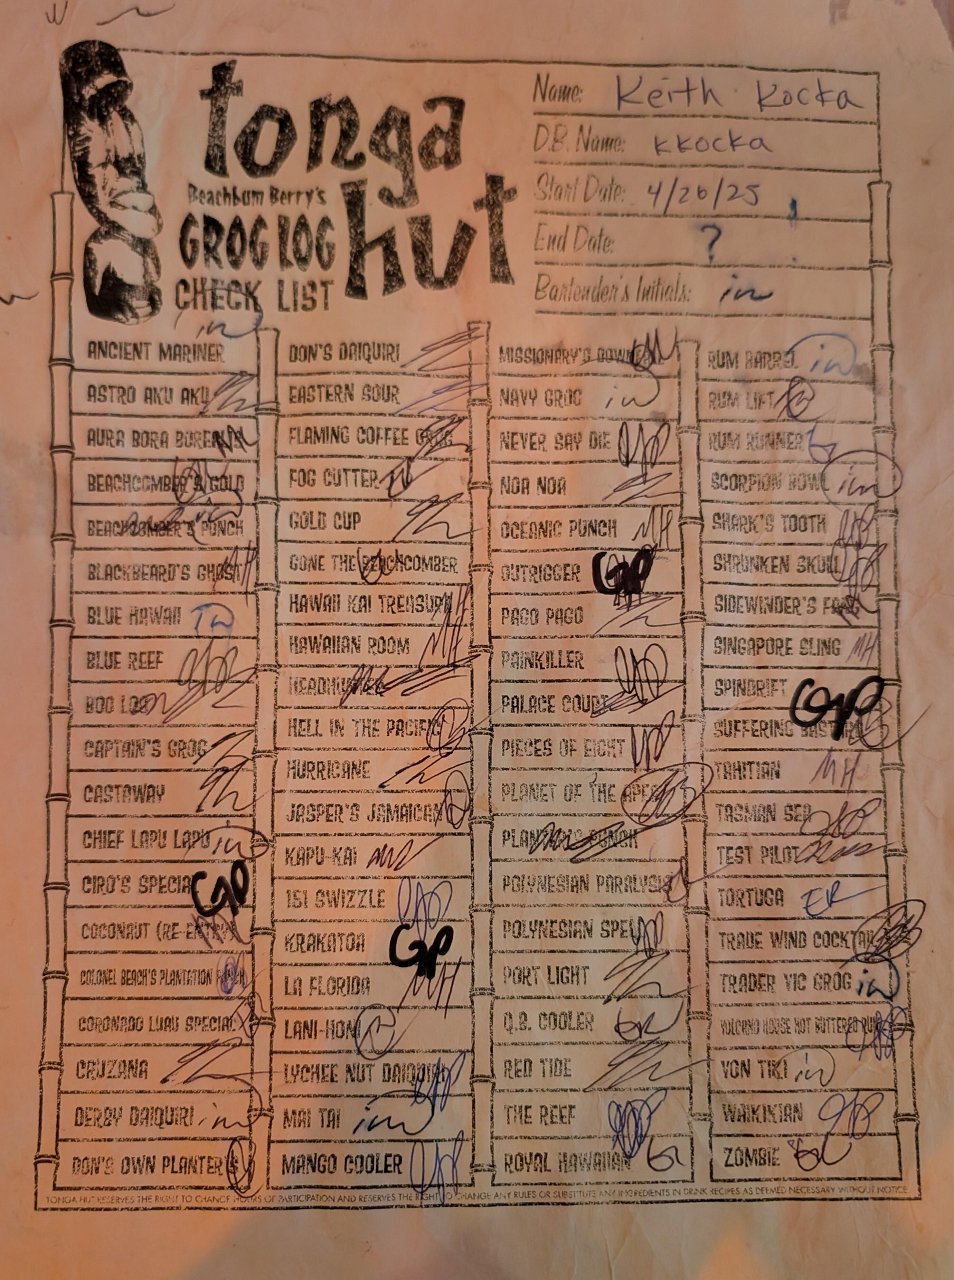 tonga
hut
Beachbum Berry's
GROG LOG
CHECK LIST
Name: Keith Kocka
D.B. Name: kkocka
Start Date: 4/26/25
End Date: ?
Bartender's Initials: in
ANCIENT MARINER in
ASTRO AKU AKU
AURA BORA BOREALIS
BEACHCOMBER'S GOLD
BEACHCOMBER'S PUNCH
BLACKBEARD'S GHOST MH
BLUE HAWAII
BLUE REEF
BOO LOO
CAPTAIN'S GROG
CASTAWAY
CHIEF LAPU LAPU in
CIRO'S SPECIAL GP
COCONAUT (RE-ENTRY)
COLONEL BEACH'S PLANTATION PUNCH
CORONADO LUAU SPECIAL
CRUZANA
DERBY DAIQUIRI in
DON'S OWN PLANTER'S
DON'S DAIQUIRI
EASTERN SOUR
FLAMING COFFEE GROG
FOG CUTTER
GOLD CUP
GONE THE BEACHCOMBER
HAWAII KAI TREASURE MH
HAWAIIAN ROOM MH
HEADHUNTER
HELL IN THE PACIFIC
HURRICANE
JASPER'S JAMAICAN
KAPU-KAI
151 SWIZZLE
KRAKATOA GP
LA FLORIDA MH
LANI-HONI
LYCHEE NUT DAIQUIRI
MAI TAI in
MANGO COOLER
MISSIONARY'S DOWNFALL
NAVY GROG in
NEVER SAY DIE
NOA NOA
OCEANIC PUNCH MH
OUTRIGGER GP
PAGO PAGO
PAINKILLER
PALACE COURT
PIECES OF EIGHT
PLANET OF THE APES
PLANTER'S PUNCH
POLYNESIAN PARALYSIS
POLYNESIAN SPELL
PORT LIGHT
Q.B. COOLER
RED TIDE
THE REEF
ROYAL HAWAIIAN
RUM BARREL in
RUM LIFT
RUM RUNNER
SCORPION BOWL in
SHARK'S TOOTH
SHRUNKEN SKULL
SIDEWINDER'S FANG
SINGAPORE SLING MH
SPINDRIFT GP
SUFFERING BASTARD
TAHITIAN MH
TASMAN SEA
TEST PILOT
TORTUGA ER
TRADE WIND COCKTAIL
TRADER VIC GROG in
VOLCANO HOUSE HOT BUTTERED RUM
VON TIKI in
WAIKIKIAN
ZOMBIE
TONGA HUT RESERVES THE RIGHT TO CHANGE HOURS OF PARTICIPATION AND RESERVES THE RIGHT TO CHANGE ANY RULES OR SUBSTITUTE ANY INGREDIENTS IN DRINK RECIPES AS DEEMED NECESSARY WITHOUT NOTICE